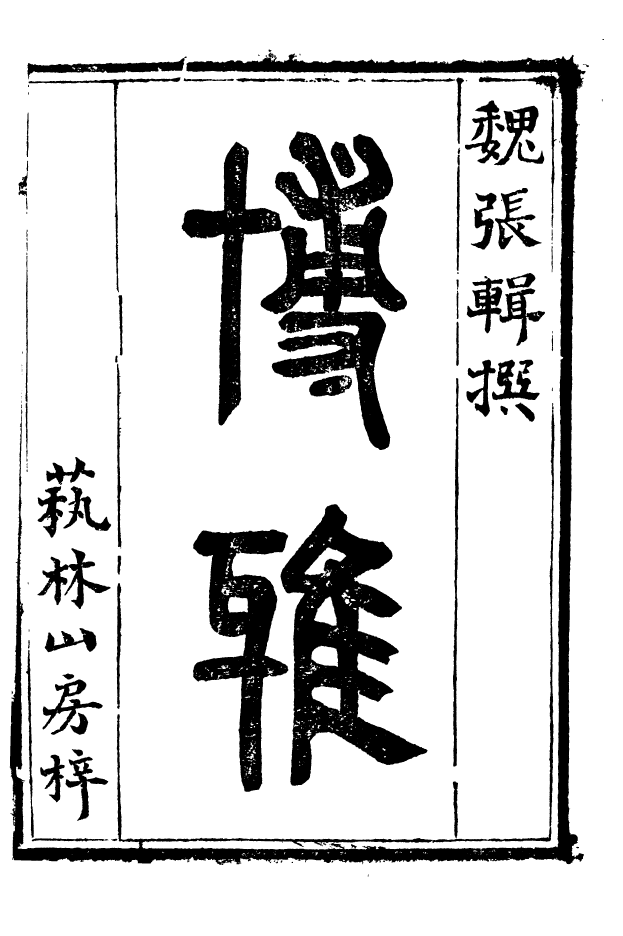 魏張輯撰
博雅
蓺林山房梓